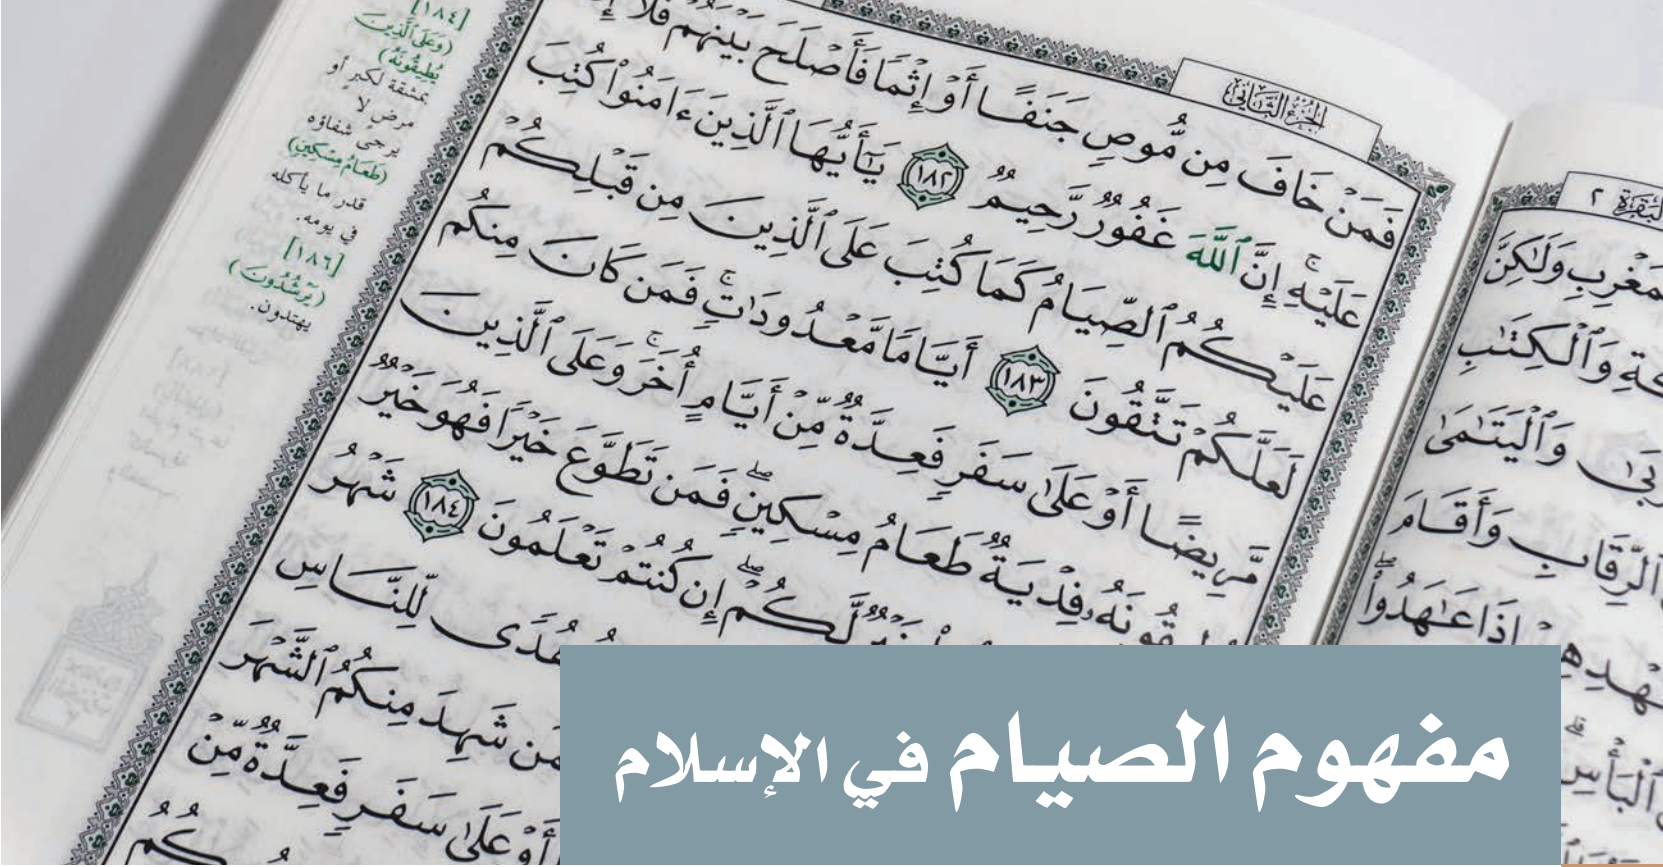 الجزء الثاني
فَمَنْ خَافَ مِن مُّوصٍ جَنَفًا أَوْ إِثْمًا فَأَصْلَحَ بَيْنَهُمْ فَلَآ إِثْمَ
عَلَيْهِ ۚ إِنَّ ٱللَّهَ غَفُورٌ رَّحِيمٌ ١٨٢ يَـٰٓأَيُّهَا ٱلَّذِينَ ءَامَنُوا۟ كُتِبَ
عَلَيْكُمُ ٱلصِّيَامُ كَمَا كُتِبَ عَلَى ٱلَّذِينَ مِن قَبْلِكُمْ
لَعَلَّكُمْ تَتَّقُونَ ١٨٣ أَيَّامًا مَّعْدُودَٰتٍ ۚ فَمَن كَانَ مِنكُم
مَّرِيضًا أَوْ عَلَىٰ سَفَرٍ فَعِدَّةٌ مِّنْ أَيَّامٍ أُخَرَ ۚ وَعَلَى ٱلَّذِينَ
يُطِيقُونَهُۥ فِدْيَةٌ طَعَامُ مِسْكِينٍ ۖ فَمَن تَطَوَّعَ خَيْرًا فَهُوَ خَيْرٌ
لَّكُمْ ۖ إِن كُنتُمْ تَعْلَمُونَ ١٨٤ شَهْرُ
هُدًى لِّلنَّاسِ
فَمَن شَهِدَ مِنكُمُ ٱلشَّهْرَ
أَوْ عَلَىٰ سَفَرٍ فَعِدَّةٌ مِّنْ
[١٨٤]
(وَعَلَى ٱلَّذِينَ
يُطِيقُونَهُۥ)
بمشقة لكبر أو
مرض لا
يرجى شفاؤه
(طَعَامُ مِسْكِينٍ)
قدر ما يأكله
في يومه.
[١٨٦]
(يَرْشُدُونَ)
يهتدون.
البقرة ٢
وَلَـٰكِنَّ
وَٱلْكِتَـٰبِ
وَٱلْيَتَـٰمَىٰ
ٱلرِّقَابِ وَأَقَامَ
إِذَا عَـٰهَدُوا۟
ٱلْبَأْسِ
مفهوم الصيام في الإسلام